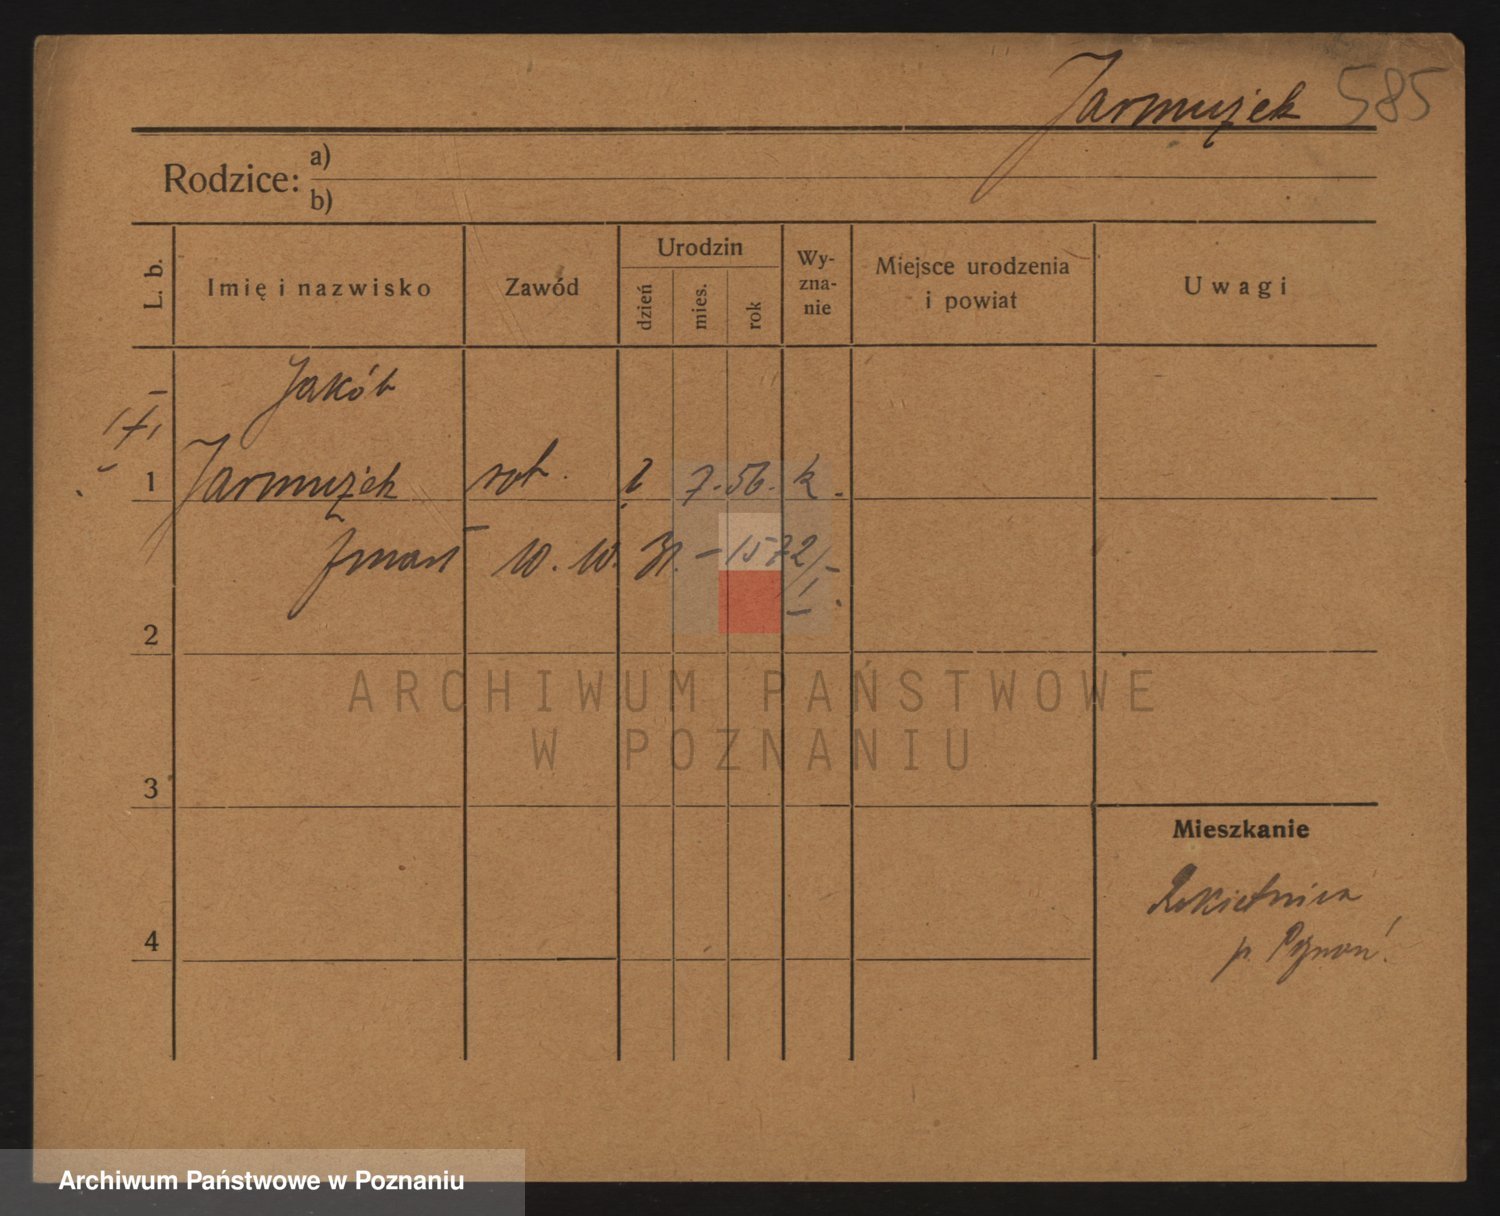 Jarmużek 585
Rodzice: a)
b)
L. b.
Imię i nazwisko
Zawód
Urodzin
dzień
mies.
rok
Wy-
zna-
nie
Miejsce urodzenia
i powiat
Uwagi
Jakób
1 Jarmużek rob. 7. 56. k.
Zmarł 10. 10. 31. – 1572/I
2
ARCHIWUM PAŃSTWOWE
W POZNANIU
3
Mieszkanie
Rokietnica
4
p. Poznań.
Archiwum Państwowe w Poznaniu